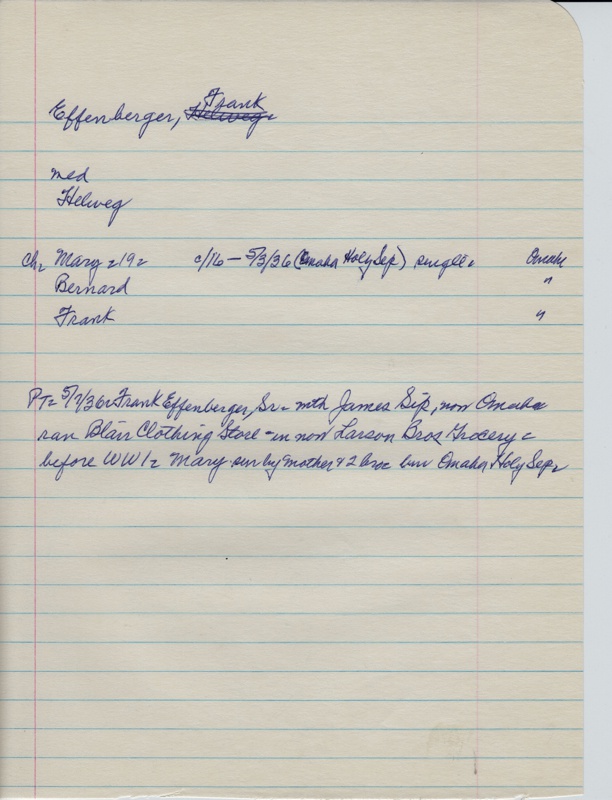 Effenberger, Frank
med
Helweg
Ch= Mary =19= c/16 – 5/3/36 (Omaha Holy Sep) single= Omaha
Bernard "
Frank "
PT= 5/7/36= Frank Effenberger, Sr= with James Sip, now Omaha=
ran Blair Clothing Store – in now Larson Bros Grocery =
before WW1= Mary sur by mother & 2 bro= bur Omaha Holy Sep=